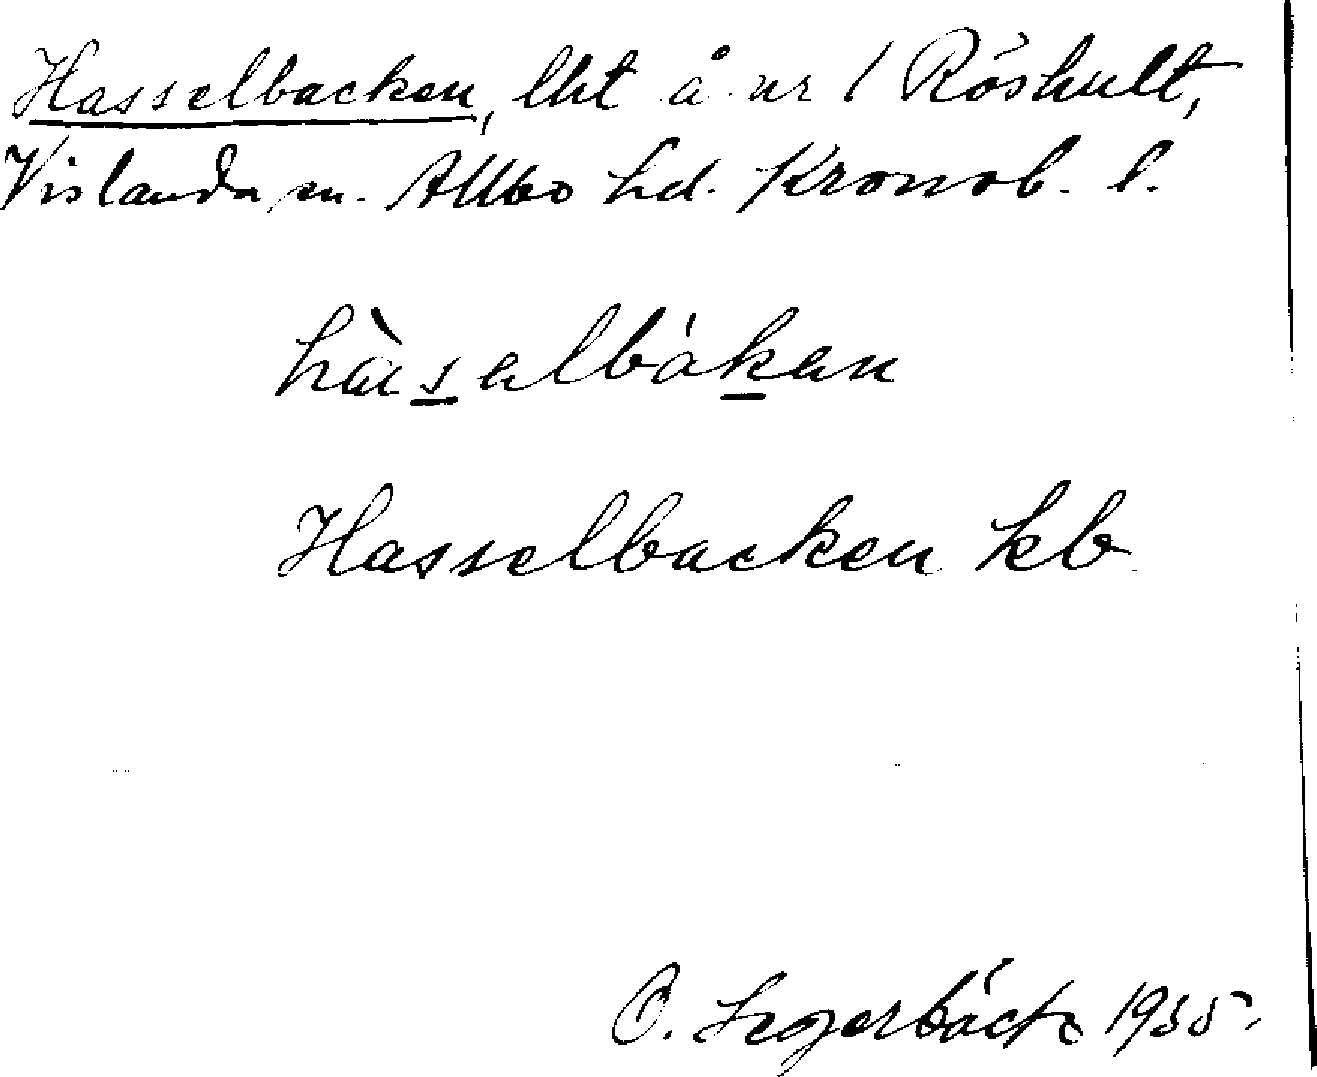 Hasselbacken, lht å nr 1 Röshult,
Vislanda sn. Allbo hd. Kronob. l.
hàsalbákan
Hasselbacken kb
O. Segerbäck 1935.